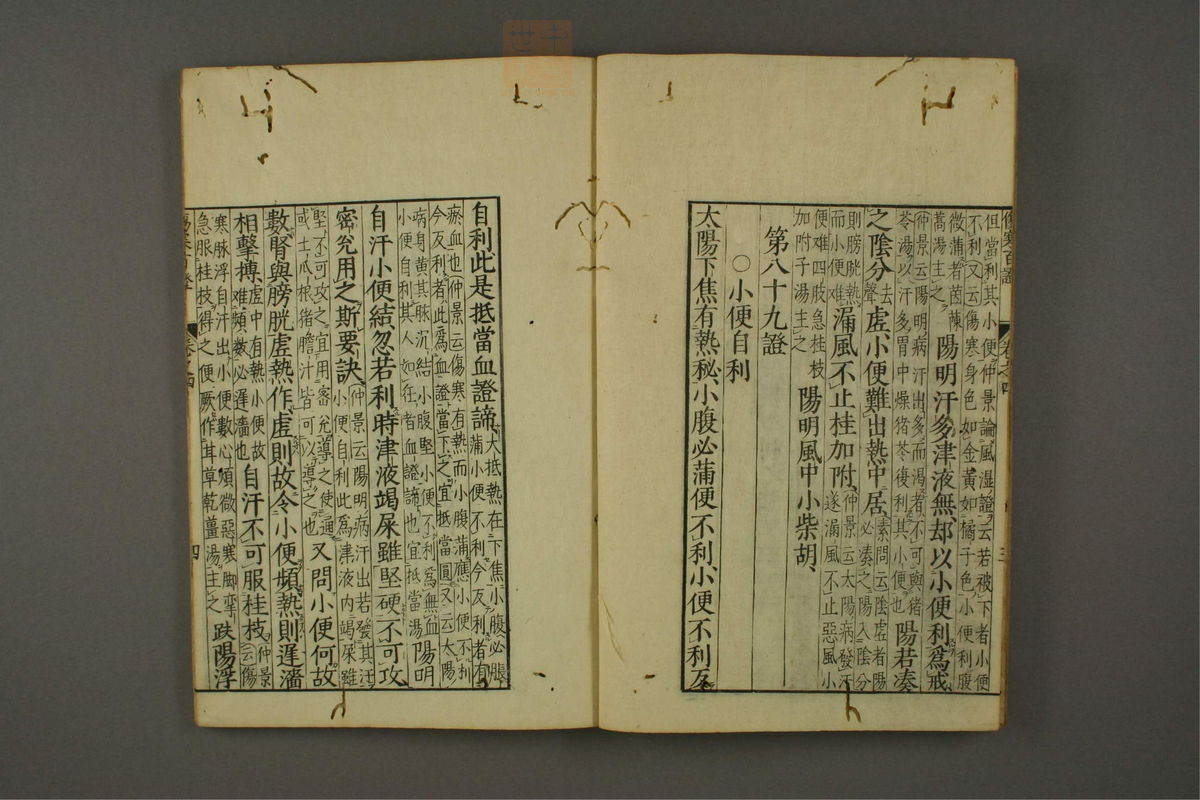 但當利其小便仲景論風湿證云若被下者小便
不利又云傷寒身色如金黄如橘子色小便利腹
微蒲者茵蔯
蒿湯主之
陽明汗多津液無却以小便利為戒
仲景云陽明病汗出多而渴者不可與猪
苓湯以汗多胃中燥猪苓復利其小便也
陽若凑
之陰分去聲虚小便難出熱中居
素問云陰虚者陽
必凑之陽入陰分
則膀胱熱
而小便難
漏風不止桂加附
仲景云太陽病發汗
遂漏風不止惡風小
便难四肢急桂枝
加附子湯主之
陽明風中小柴胡
第八十九證
〇小便自利
太陽下焦有熱秘小腹必蒲便不利小便不利反
自利此是抵當血證諦
大抵熱在下焦小腹必脹
蒲小便不利今反利者有
瘀血也仲景云傷寒有熱而小腹蒲應小便不利
今反利者此為血證當下之宜抵當圓又云太陽
病身黄其脉沉結小腹堅小便不利為無血
小便自利其人如狂者血證諦也宜抵當湯
陽明
自汗小便結忽若利時津液竭屎雖堅硬不可攻
密兊用之斯要訣
仲景云陽明病汗出若發其汗
小便自利此為津液内竭屎雖
堅不可攻之宜用密兊導之使通
或土瓜根猪膽汁皆可以導之也
又問小便何故
數腎與膀胱虚熱作虚則故令小便頻熱則遲濇
相擊搏
虚中有熱小便故
难頻數必遲濇也
自汗不可服桂枝
仲景云傷
寒脉浮自汗出小便數心煩微惡寒脚孿
急服桂枝得之便厥作耳草乾薑湯主之
趺陽浮
傷寒百證
卷之四
三
卷之四
四